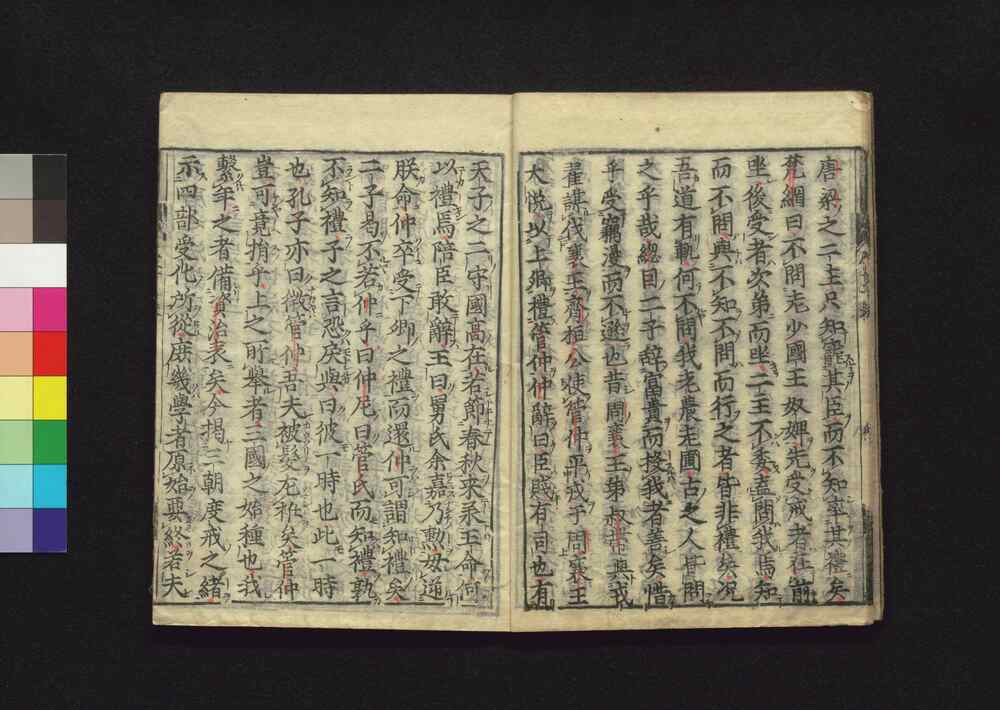 唐梁之二主只知寵其臣而不知率其禮矣
梵網曰不問老少國王奴婢先受戒者在前
坐後受者次第而坐二主不委盍問我焉知
而不問與不知不問而行之者皆非禮矣況
吾道有軌何不問我老農老圃古之人皆問
之乎哉總曰二子辭富貴而投我者善矣惜
乎受竊漫而不遜也昔周襄王弟叔帶與戎
翟謀伐襄王齊桓公使管仲平戎于周襄王
大悅以上卿禮管仲仲辭曰臣賤有司也有
天子之二守國高在若節春秋來承王命何
以禮焉陪臣敢辭王曰舅氏余嘉乃勲毋逆
朕命仲卒受下卿之禮而還仲可謂知禮矣
二子曷不若仲乎曰仲尼曰管氏而知禮孰
不知禮子之言恐戾與曰彼一時也此一時
也孔子亦曰微管仲吾夫被髮左衽矣管仲
豈可竟捎乎上之所舉者三國之始種也我
繫年之者備資治表矣今揭三朝度戒之緒
示四部受化所從庶幾學者原始要終若夫